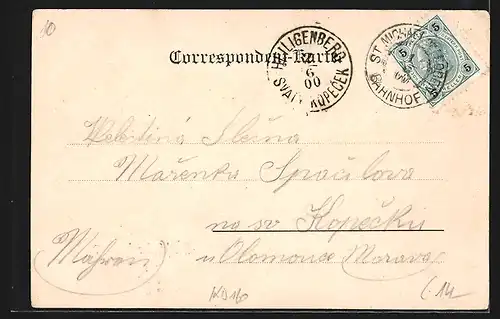 10
Correspondenz-Karte
HEILIGENBERG
6
00
SVATÝ KOPEČEK
ST. MICHAEL
BAHNHOF
5 5
5 5
Slečna
Mařenka Spáčilova
na sv Kopečku
(Mähren) u Olomouce (Morava)